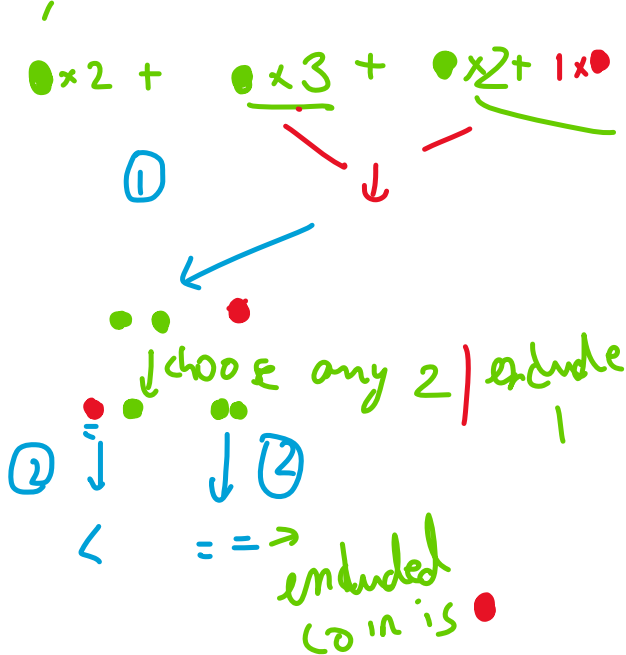 ×2 + ×3 + ×2 + 1×
1
choose any 2 | exclude
1
2 2
< ==
encluded
coin is